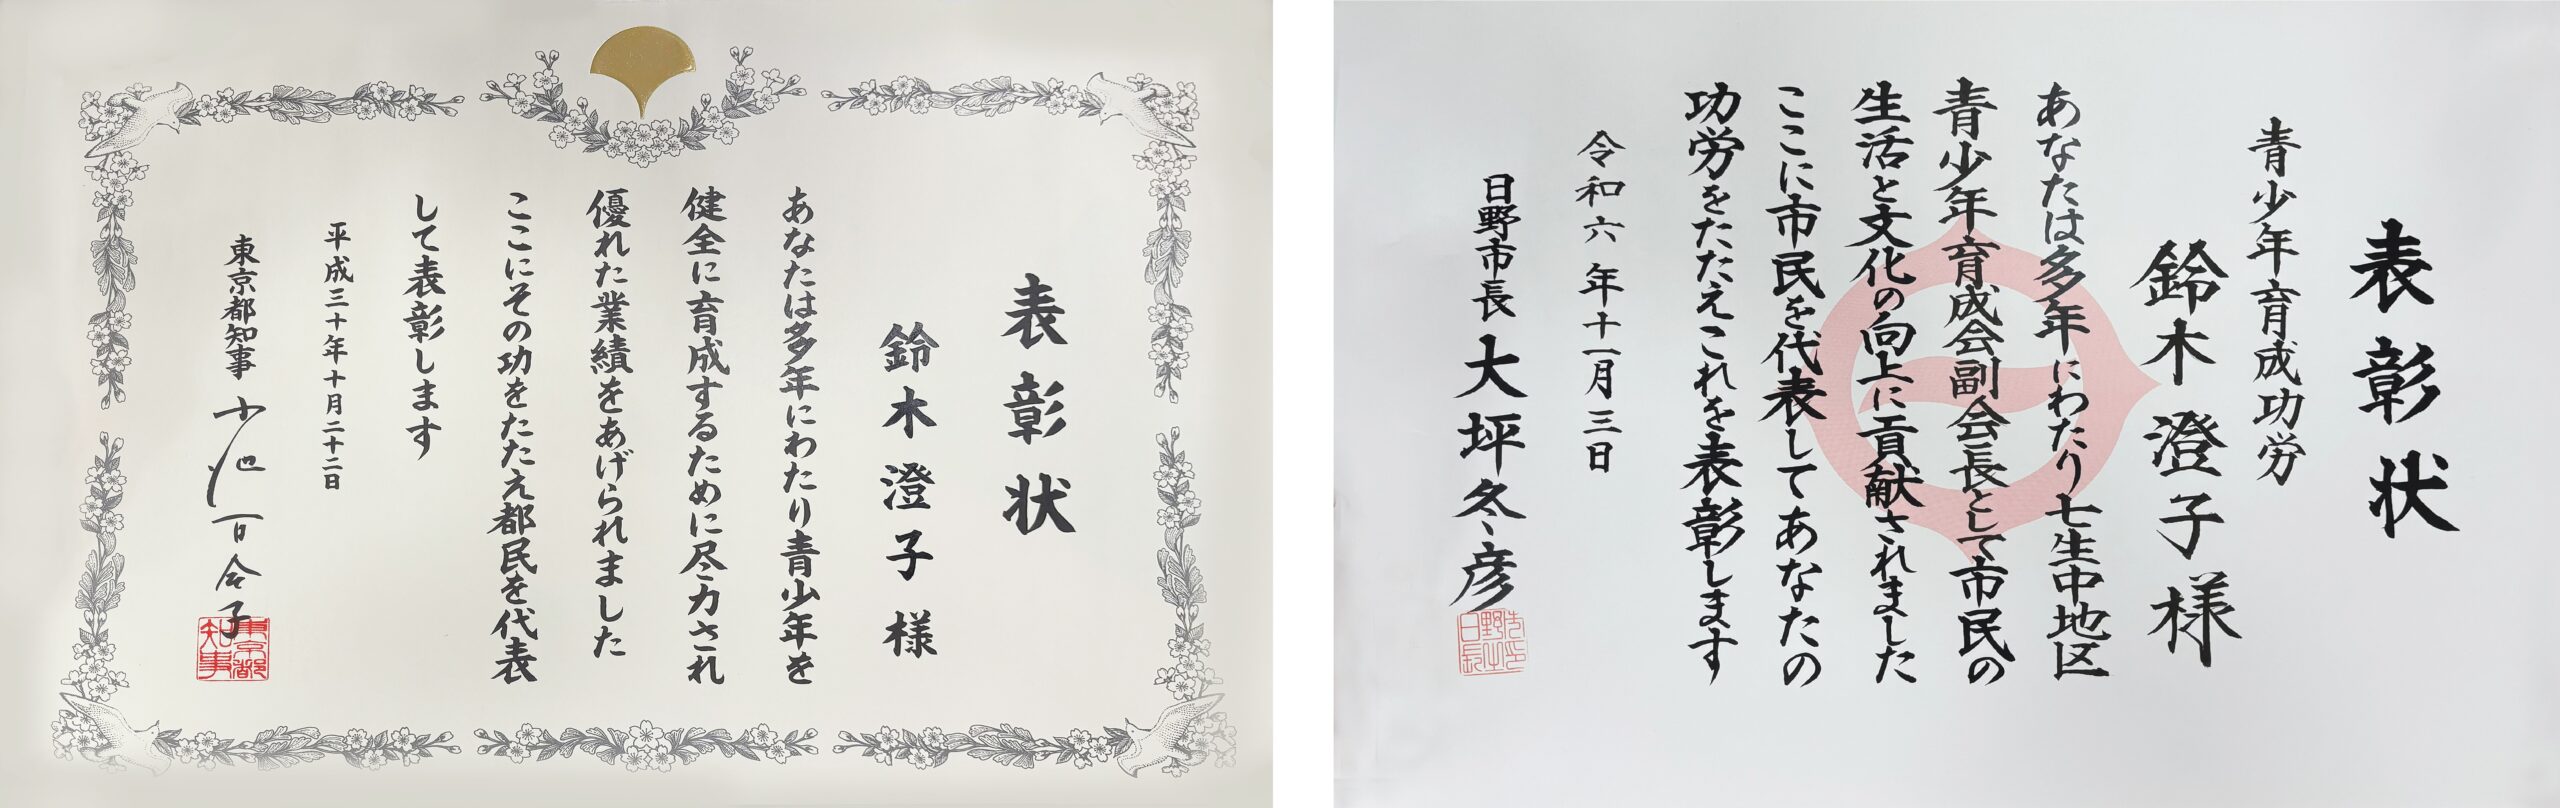 表彰状
鈴木澄子様
あなたは多年にわたり青少年を
健全に育成するために尽力され
優れた業績をあげられました
ここにその功をたたえ都民を代表
して表彰します
平成三十年十月二十二日
東京都知事 小池百合子
東京都知事
表彰状
青少年育成功労
鈴木澄子様
あなたは多年にわたり七生中地区
青少年育成会副会長として市民の
生活と文化の向上に貢献されました
ここに市民を代表してあなたの
功労をたたえこれを表彰します
令和六年十一月三日
日野市長 大坪冬彦